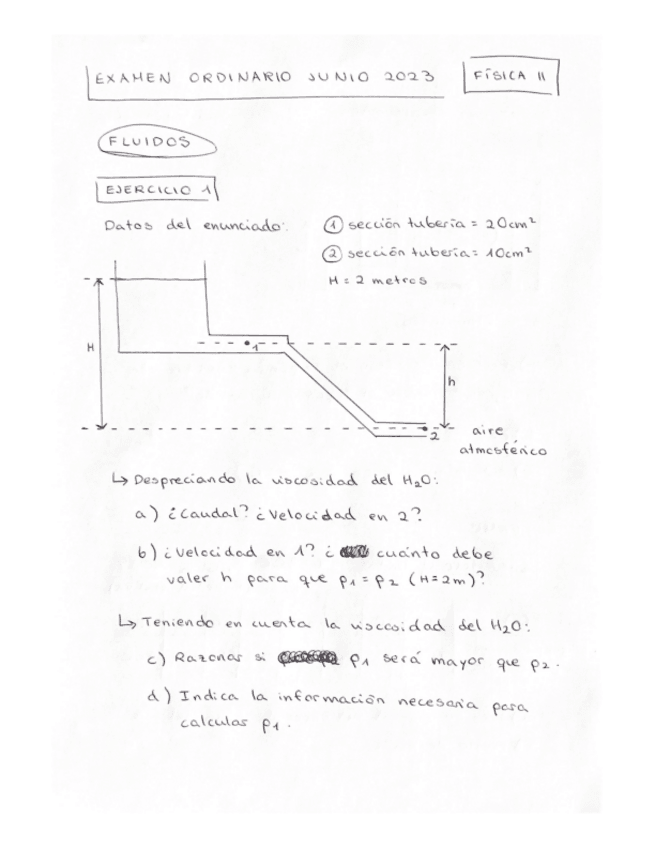 EXAMEN ORDINARIO JUNIO 2023
FÍSICA II
FLUIDOS
EJERCICIO 1
Datos del enunciado:
① sección tubería = 20cm²
② sección tubería = 10cm²
H = 2 metros
H
1
h
2
aire
atmosférico
↳ Despreciando la viscosidad del H₂O:
a) ¿Caudal? ¿Velocidad en 2?
b) ¿Velocidad en 1? ¿ cuánto debe
valer h para que p₁ = p₂ (H=2m)?
↳ Teniendo en cuenta la viscosidad del H₂O:
c) Razonar si p₁ será mayor que p₂.
d) Indica la información necesaria para
calcular p₁.